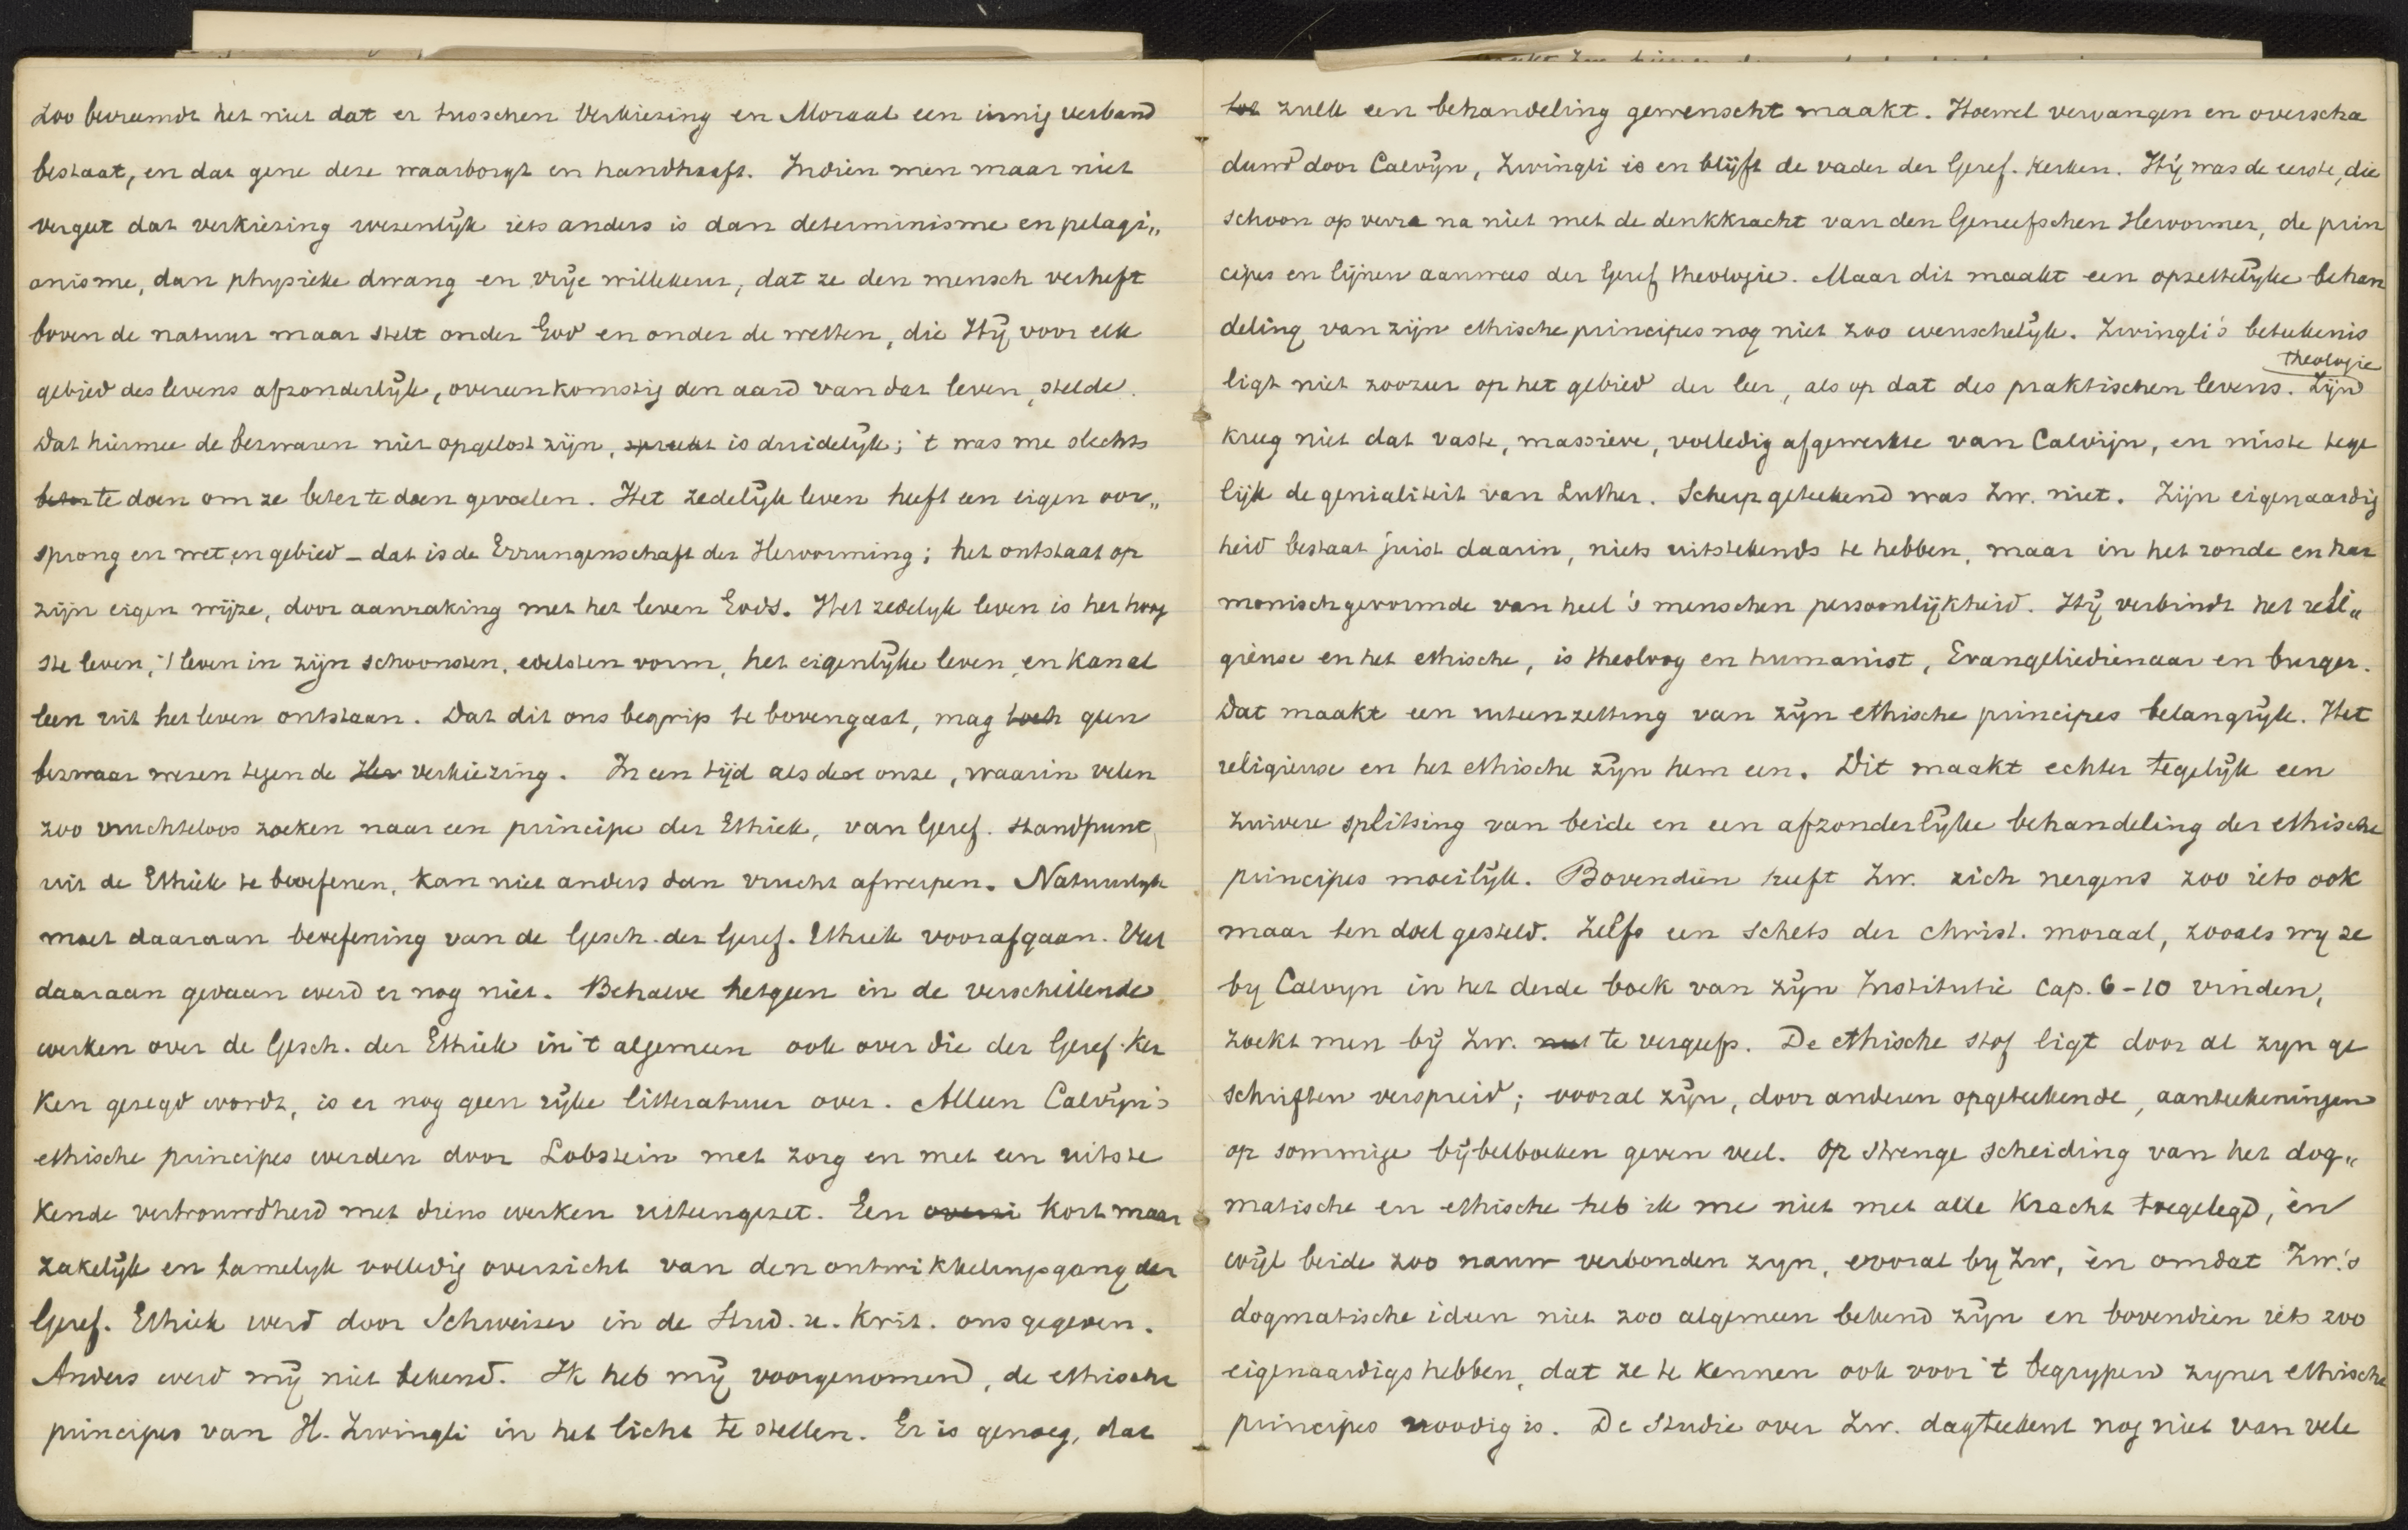 zoo bevreemdt het niet dat er tusschen Verkiezing en Moraal een innig verband
bestaat, en dat gene deze waarborgt en handhaaft. Indien men maar niet
vergeet dat verkiezing wezenlijk iets anders is dan determinisme en pelagi„
anisme, dan physieke dwang en vrije willekeur, dat ze den mensch verheft
boven de natuur maar stelt onder God en onder de wetten, die Hij voor elk
gebied des levens afzonderlijk, overeenkomstig den aard van dat leven, stelde.
Dat hiermee de bezwaren niet opgelost zijn, spreekt is duidelijk; 't was me slechts
beter te doen om ze beter te doen gevoelen. Het zedelijk leven heeft een eigen oor„
sprong en wet en gebied – dat is de Errungenschaft der Hervorming; het ontstaat op
zijn eigen wijze, door aanraking met het leven Gods. Het zedelyk leven is het hoog
ste leven, 't leven in zijn schoonsten, edelsten vorm, het eigenlijke leven, en kan al
leen uit het leven ontstaan. Dat dit ons begrip te bovengaat, mag toch geen
bezwaar wezen tegen de Her verkiezing. In een tijd als deze onze, waarin velen
zoo vruchteloos zoeken naar een principe der Ethiek, van Geref. standpunt
uit de Ethiek te beoefenen, kan niet anders dan vrucht afwerpen. Natuurlyk
moet daaraan beoefening van de Gesch. der Geref. Ethiek voorafgaan. Veel
daaraan gedaan werd er nog niet. Behalve hetgeen in de verschillende
werken over de Gesch. der Ethiek in 't algemeen ook over die der Geref. Ker
ken gezegd wordt, is er nog geen rijke litteratuur over. Alleen Calvijn's
ethische principes werden door Lobstein met zorg en met een uitste
kende vertrouwdheid met diens werken uiteengezet. Een overzi kort maar
zakelijk en tamelyk volledig overzicht van den ontwikkelingsgang der
Geref. Ethiek werd door Schweizer in de Stud. u. Krit. ons gegeven.
Anders werd mij niet bekend. Ik heb mij voorgenomen, de ethische
principes van H. Zwingli in het licht te stellen. Er is genoeg, dat
tot zulk een behandeling gewenscht maakt. Hoewel vervangen en overscha
duwd door Calvijn, Zwingli is en blijft de vader der Geref. Kerken. Hij was de eerste, die
schoon op verre na niet met de denkkracht van den Geneefschen Hervormer, de prin
cipes en lijnen aanwees der Geref. theologie. Maar dit maakt een opzettelijke behan
deling van zijn ethische principes nog niet zoo wenschelijk. Zwingli's beteekenis
theologie
ligt niet zoozeer op het gebied der leer, als op dat des praktischen levens. Zijn
kreeg niet dat vaste, massieve, volledig afgewerkte van Calvijn, en miste tege
lijk de genialiteit van Luther. Scherp geteekend was Zw. niet. Zijn eigenaardig
heid bestaat juist daarin, niets uitstekends te hebben, maar in het ronde en har
monisch gevormde van heel 's menschen persoonlijkheid. Hij verbindt het reli„
gieuse en het ethische, is theoloog en humanist, Evangeliedienaar en burger.
Dat maakt een uiteenzetting van zijn ethische principes belangrijk. Het
religieuse en het ethische zijn hem een. Dit maakt echter tegelijk een
zuivere splitsing van beide en een afzonderlijke behandeling der ethische
principes moeilijk. Bovendien heeft Zw. zich nergens zoo iets ook
maar ten doel gesteld. Zelfs een schets der christ. moraal, zooals wy ze
by Calvyn in het derde boek van zijn Institutie cap. 6-10 vinden,
zoekt men bij Zw. te vergeefs. De ethische stof ligt door al zyn ge
schriften verspreid; vooral zijn, door anderen opgeteekende, aanteekeningen
op sommige bijbelboeken geven veel. Op strenge scheiding van het dog„
matische en ethische heb ik me niet met alle kracht toegelegd, èn
wijl beide zoo nauw verbonden zyn, vooral by Zw, èn omdat Zw.'s
dogmatische ideen niet zoo algemeen bekend zijn en bovendien iets zoo
eigenaardigs hebben, dat ze te kennen ook voor 't begrypen zyner ethische
principes noodig is. De studie over Zw. dagteekent nog niet van vele